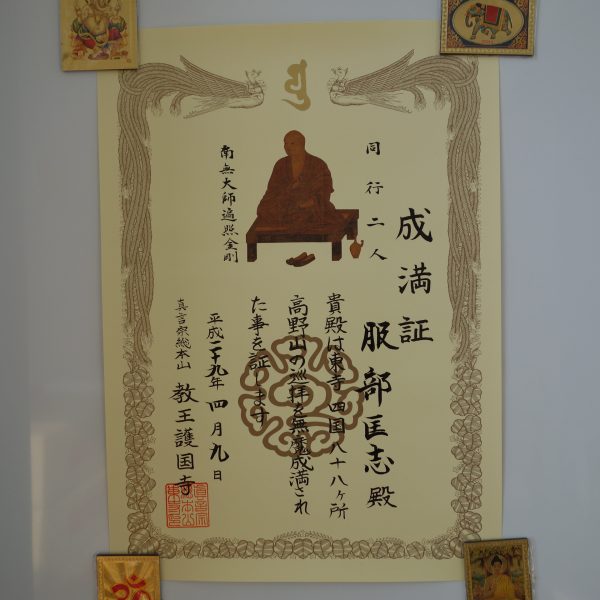 成満証
同行二人
南無大師遍照金剛
服部匡志殿
貴殿は東寺四国八十八ヶ所
高野山の巡拝を無魔成満され
た事を証します
平成二十九年四月九日
真言宗総本山 教王護国寺